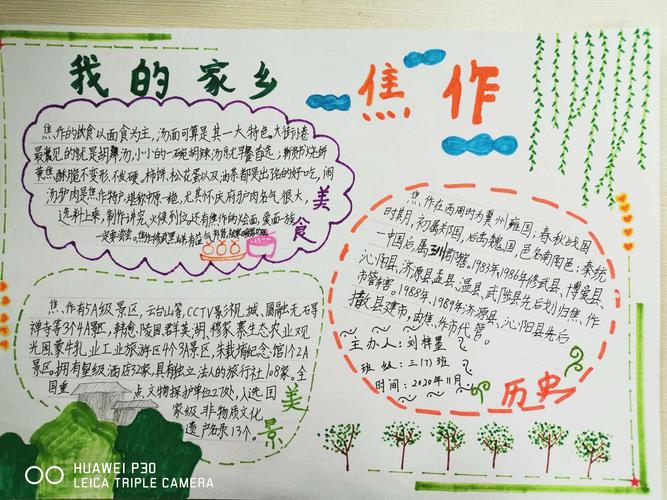 我的家乡
焦作
焦作的饮食以面食为主,汤面可算是其一大特色。大街小巷
最常见的就是胡辣汤,小小的一碗胡辣汤就早餐首选;
黄焦酥脆不变形,不皮硬。柿饼、松花蛋以及油茶都是出了名的好吃,闹
汤驴肉是焦作特产,堪称中原一艳,尤其怀庆府驴肉名气很大,
选料上乘,制作讲究,火候到位。还有焦作的烩面,
一定要尝尝。
美食
焦作在西周时为雍国;春秋战国
时期,初属郑国,后为魏国,邑名南阳邑;秦统
一中国后属三川郡辖。1983年、1986年修武县、博爱县、
沁阳县、济源县、孟县、温县、武陟县先后划归焦作
市管辖。1988年、1989年济源县、沁阳县先后
撤县建市,由焦作市代管。
主办人:刘梓昱
班级:三(7)班
时间:2020年11月
历史
焦作有5A级景区,云台山等,CCTV影视城、圆融无石寻
禅寺等3个4A景区,韩愈陵园、群英湖、穆家寨生态农业观
光园、蒙牛乳业工业旅游区4个3A景区,朱载堉纪念馆1个2A
景区。拥有星级酒店32家,具有独立法人的旅行社108家。全
国重点文物保护单位27处,入选国
家级非物质文化
遗产名录13个。
美景
HUAWEI P30
LEICA TRIPLE CAMERA